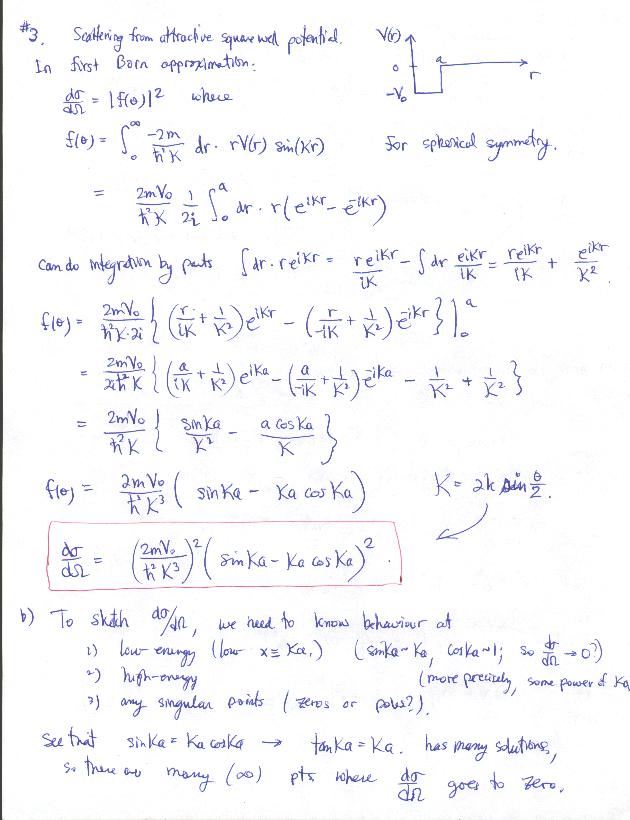 #3. Scattering from attractive square well potential.
V(r)
a
0
r
-V₀
In first Born approximation:
dσ/dΩ = |f(θ)|² where
f(θ) = ∫₀^∞ -2m/ħ²K dr · rV(r) sin(Kr) for spherical symmetry.
= 2mV₀/ħ²K 1/2i ∫₀^a dr · r(e^{iKr} - e^{-iKr})
Can do integration by parts ∫dr · re^{iKr} = re^{iKr}/iK - ∫dr e^{iKr}/iK = re^{iKr}/iK + e^{iKr}/K².
f(θ) = 2mV₀/ħ²K·2i { (r/iK + 1/K²)e^{iKr} - (r/-iK + 1/K²)e^{-iKr} }|₀^a
= 2mV₀/2iħ²K { (a/iK + 1/K²)e^{iKa} - (a/-iK + 1/K²)e^{-iKa} - 1/K² + 1/K² }
= 2mV₀/ħ²K { sinKa/K² - a cosKa/K }
f(θ) = 2mV₀/ħ²K³ ( sinKa - Ka cosKa ) K = 2k sin θ/2.
dσ/dΩ = (2mV₀/ħ²K³)² ( sinKa - Ka cosKa )².
b) To sketch dσ/dΩ, we need to know behaviour at
1) low-energy (low x ≡ Ka,) (sinKa ~ Ka, cosKa ~ 1; so dσ/dΩ → 0?)
2) high-energy (more precisely, some power of Ka
3) any singular points (zeros or poles?).
See that sinKa = Ka cosKa → tanKa = Ka. has many solutions,
so there are many (∞) pts where dσ/dΩ goes to zero.